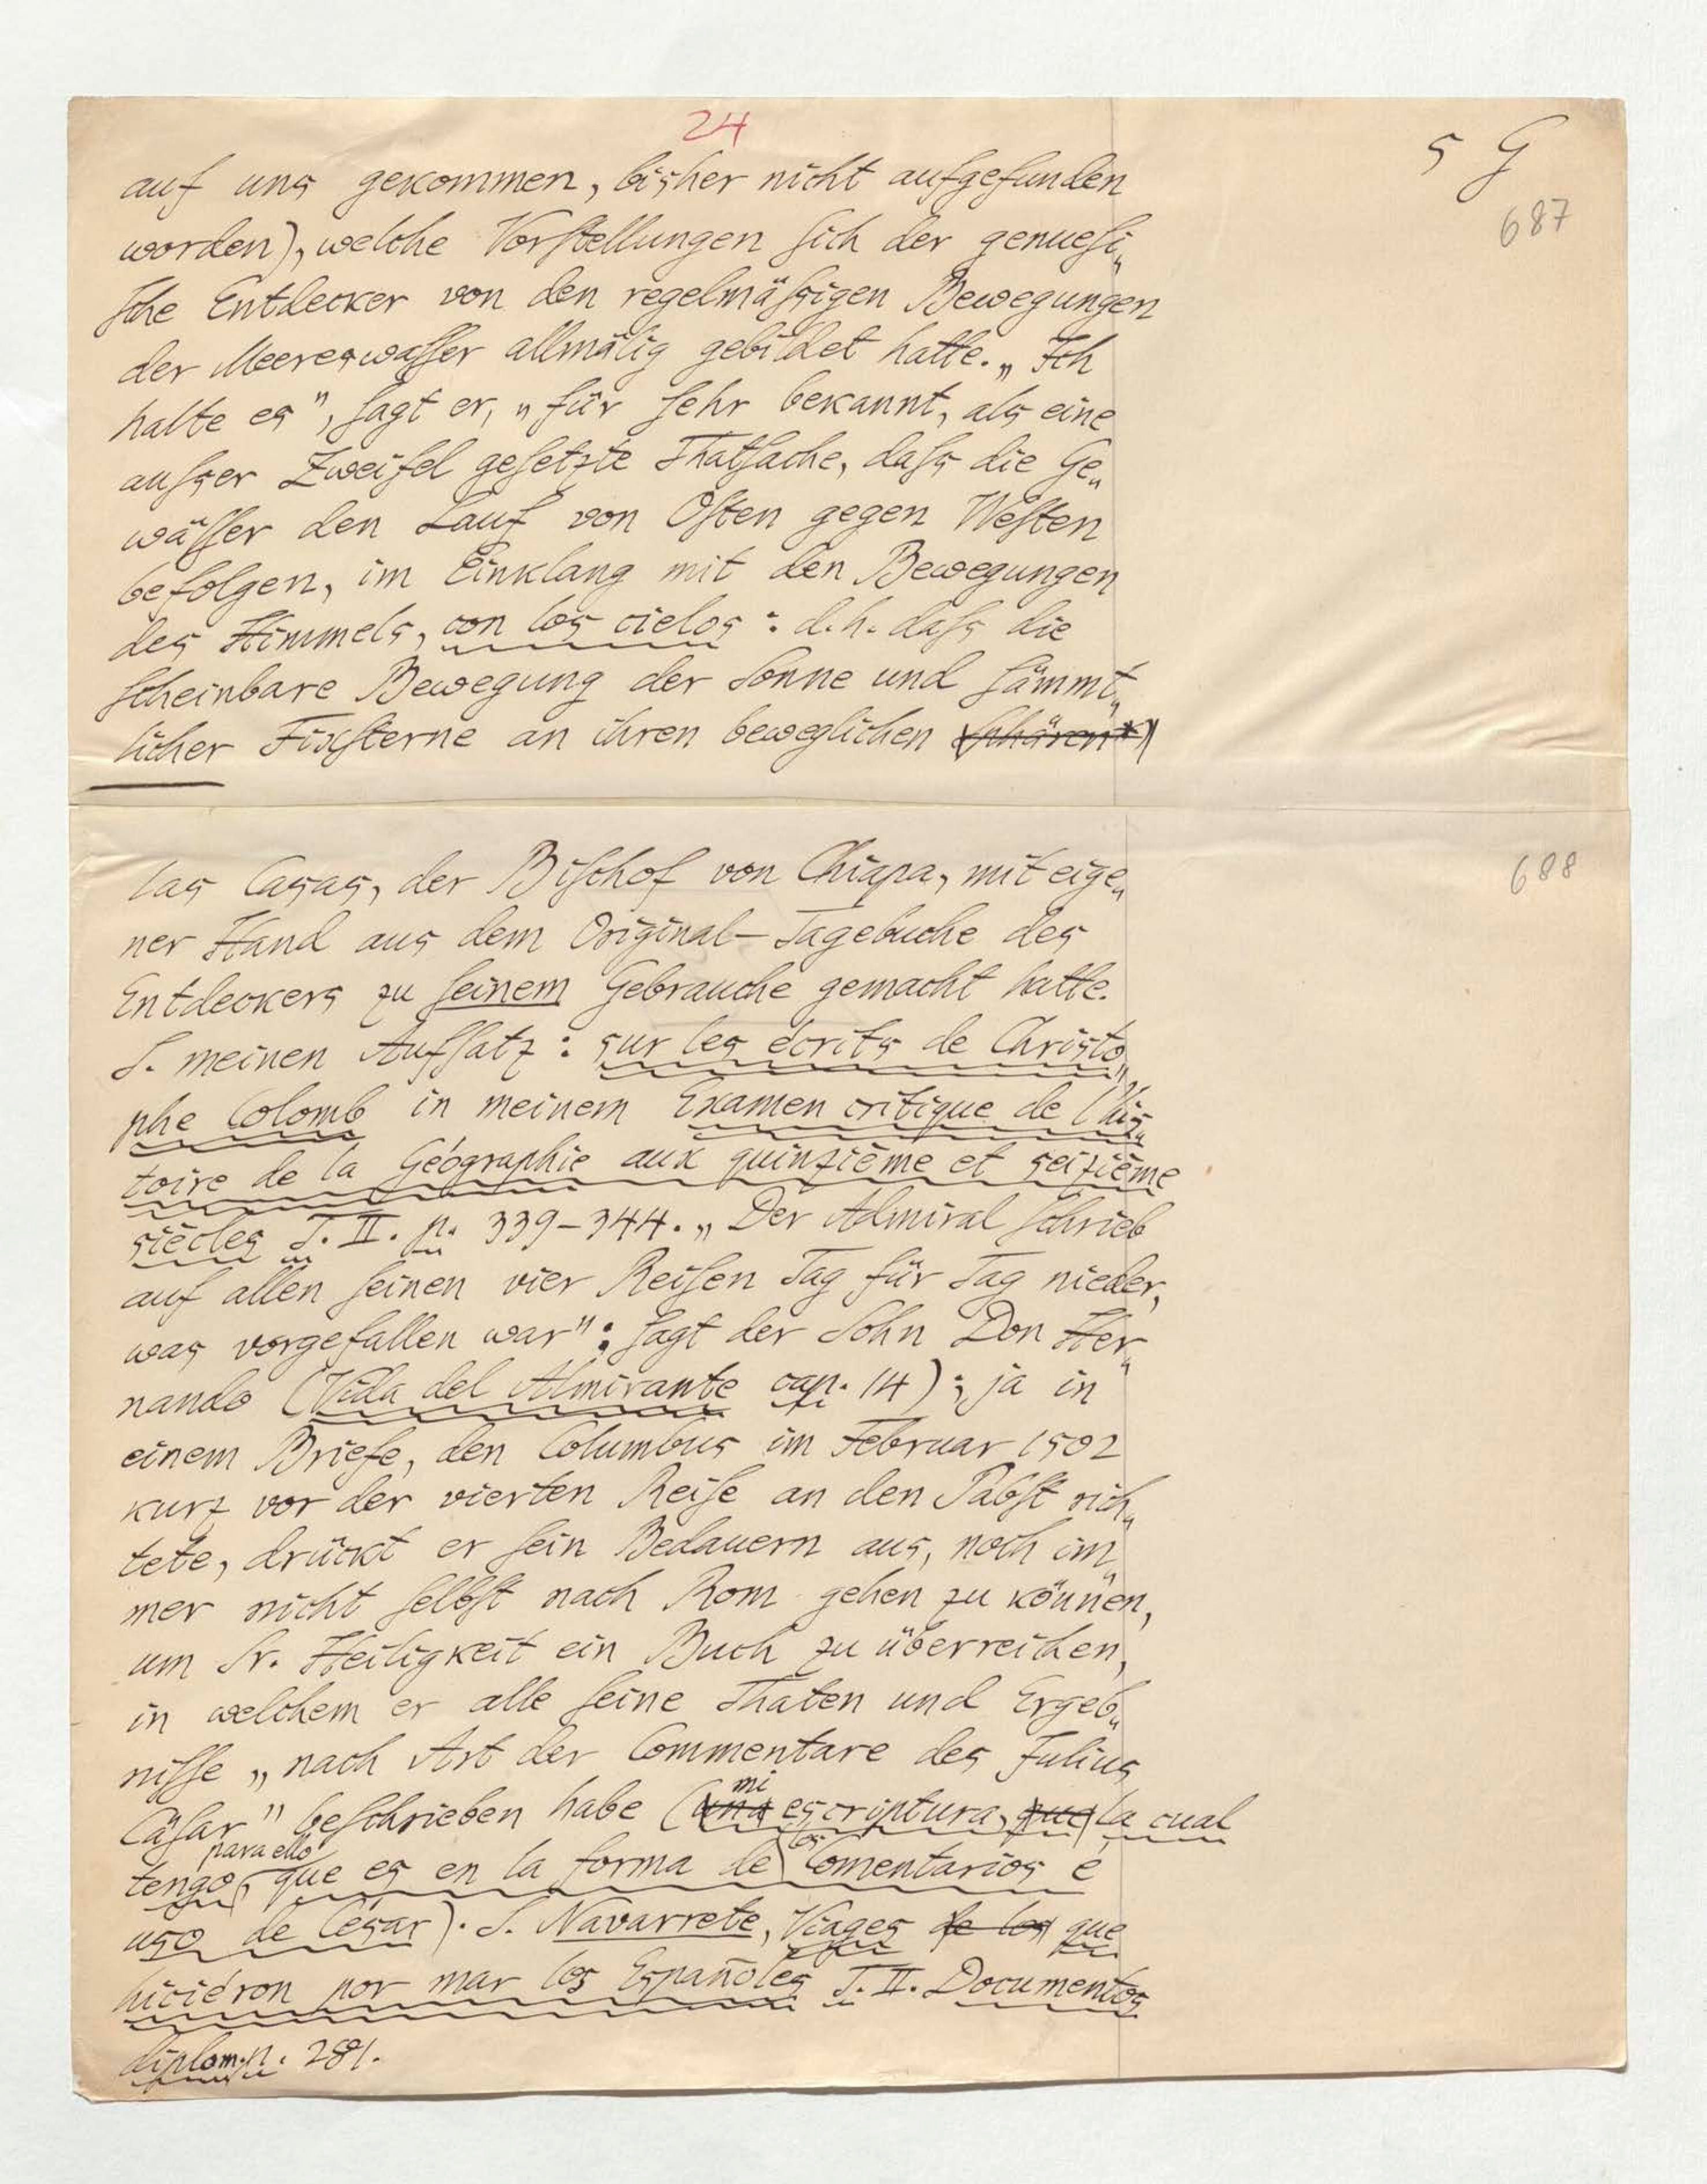 24
5 G
687
auf uns gekommen, bisher nicht aufgefunden
worden), welche Vorstellungen sich der genuesi„
sche Entdecker von den regelmäßigen Bewegungen
der Meereswasser allmälig gebildet hatte. „Ich
halte es", sagt er, „für sehr bekannt, als eine
außer Zweifel gesetzte Thatsache, daß die Ge„
wässer den Lauf von Osten gegen Westen
befolgen, im Einklang mit den Bewegungen
des Himmels, con los cielos: d.h. daß die
scheinbare Bewegung der Sonne und sämmt„
licher Fixsterne an ihren beweglichen Sphären*)
688
las Casas, der Bischof von Chiapa, mit eige„
ner Hand aus dem Original-Tagebuche des
Entdeckers zu seinem Gebrauche gemacht hatte.
S. meinen Aufsatz: sur les écrits de Christo„
phe Colomb in meinem Examen critique de l'his„
toire de la Géographie aux quinzième et seizième
siècles T. II. p. 339-344. „Der Admiral schrieb
auf allen seinen vier Reisen Tag für Tag nieder,
was vorgefallen war"; sagt der Sohn Don Her„
nando (Vida del Almirante cap. 14); ja in
einem Briefe, den Columbus im Februar 1502
kurz vor der vierten Reise an den Pabst rich„
tete, drückt er sein Bedauern aus, noch im„
mer nicht selbst nach Rom gehen zu können,
um Sr. Heiligkeit ein Buch zu überreichen,
in welchem er alle seine Thaten und Ergeb„
nisse „nach Art der Commentare des Julius
Cäsar" beschrieben habe (una mi escriptura, que la cual
tengo para ello, que es en la forma de los Comentarios é
uso de César). S. Navarrete, Viages de los que
hiciéron por mar los Españoles T. II. Documentos
diplom. p. 281.